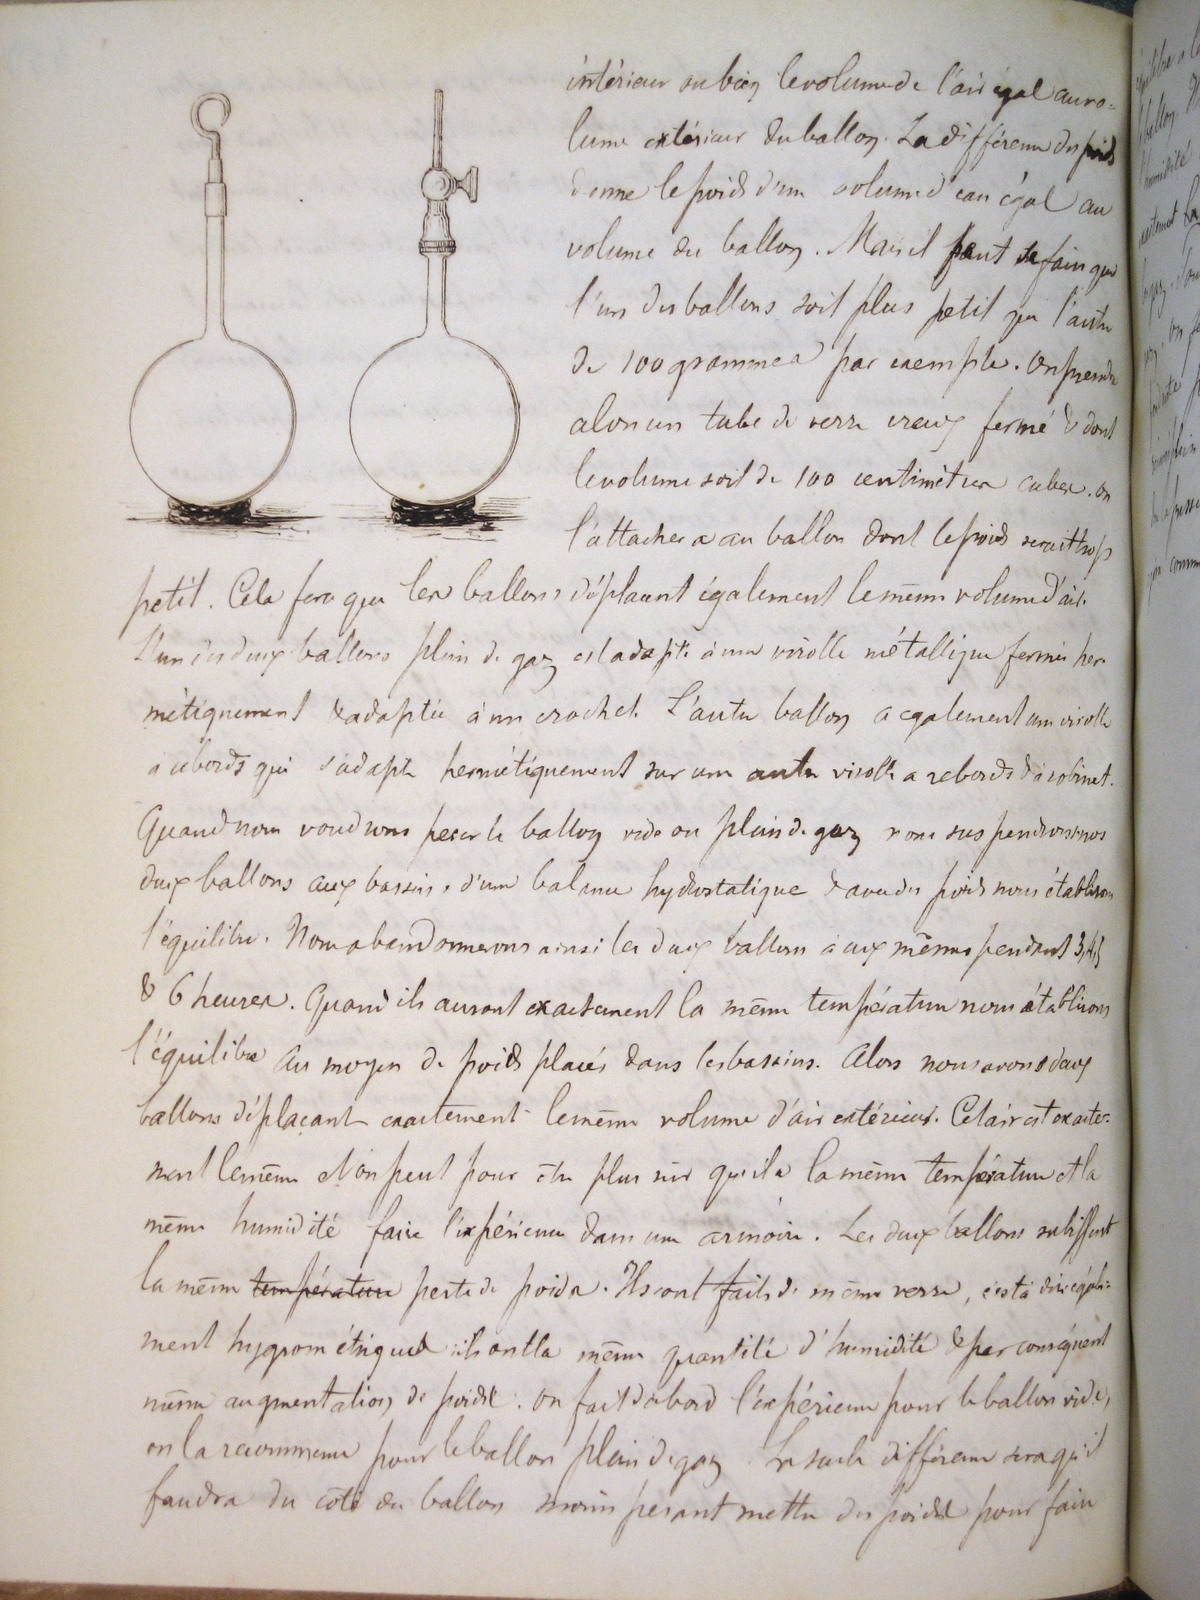 intérieur ou bien le volume de l'air égal au vo-
lume extérieur du ballon. La différence des poids
donne le poids d'un volume d'eau égal au
volume du ballon. Mais il peut se faire que
l'un des ballons soit plus petit que l'autre
de 100 grammes par exemple. On prendra
alors un tube de verre creux fermé & dont
le volume soit de 100 centimètres cubes. on
l'attachera au ballon dont le poids serait trop
petit. Cela fera que les ballons déplacent également le même volume d'air.
L'un des deux ballons plein de gaz est adapté à une virolle métallique fermée her-
métiquement & adaptée à un crochet. L'autre ballon a egalement une virolle
à rebords qui s'adapte hermétiquement sur une autre virolle a rebords & à robinet.
Quand nous voudrons peser le ballon vide ou plein de gaz nous suspendrons nos
deux ballons aux bassins d'une balance hydrostatique & avec des poids nous établirons
l'équilibre. Nous abandonnerons ainsi les deux ballons à eux mêmes pendant 3, 4, 5
& 6 heures. Quand ils auront exactement la même température nous établirons
l'équilibre au moyen de poids placés dans les bassins. Alors nous avons deux
ballons déplaçant exactement le même volume d'air extérieur. Cet air est exacte-
ment le même & l'on peut pour être plus sûr qu'il a la même température et la
même humidité faire l'expérience dans une armoire. Les deux ballons subissent
la même température perte de poids. Ils sont faits de même verre, c'est à dire égale-
ment hygrométriques ils ont la même quantité d'humidité & par conséquent
même augmentation de poids. on fait d'abord l'expérience pour le ballon vide,
on la recommence pour le ballon plein de gaz. La seule différence sera qu'il
faudra du côté du ballon moins pesant mettre des poids pour faire